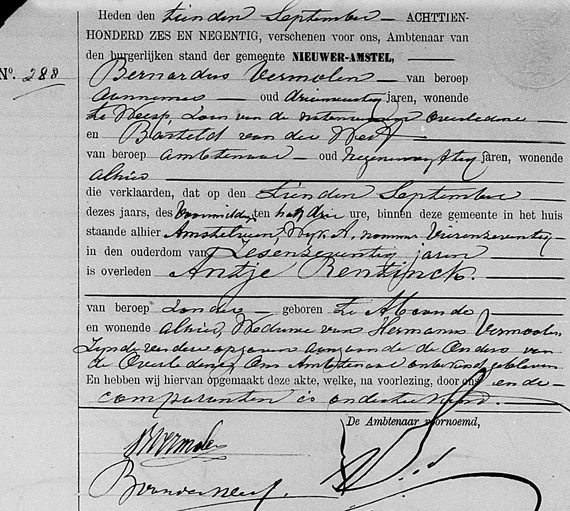 Heden den tienden September — ACHTTIEN-
HONDERD ZES EN NEGENTIG, verschenen voor ons, Ambtenaar van
den burgerlijken stand der gemeente NIEUWER-AMSTEL,
No. 288
Bernardus Vermolen — van beroep
aannemer — oud drieenveertig jaren, wonende
te Weesp, Zoon van de Overledene —
en Barteld van der Neut
van beroep ambtenaar — oud jaren, wonende
alhier
die verklaarden, dat op den tienden September
dezes jaars, des Voormiddags ten half drie ure, binnen deze gemeente in het huis
staande alhier Amstelveen, Wijk A, nommer Vierenzeventig
in den ouderdom van Zesenzeventig jaren
is overleden Antje
van beroep zonder — geboren te Abcoude
en wonende alhier, Weduwe van Hermanus Vermolen
Zijnde verdere opgaven aangaande de Ouders van
de Overledene, Ons Ambtenaar onbekend gebleven
En hebben wij hiervan opgemaakt deze akte, welke, na voorlezing, door ons en de
comparanten is onderteekend.
De Ambtenaar voornoemd,
BVermolen
BvanderNeut.